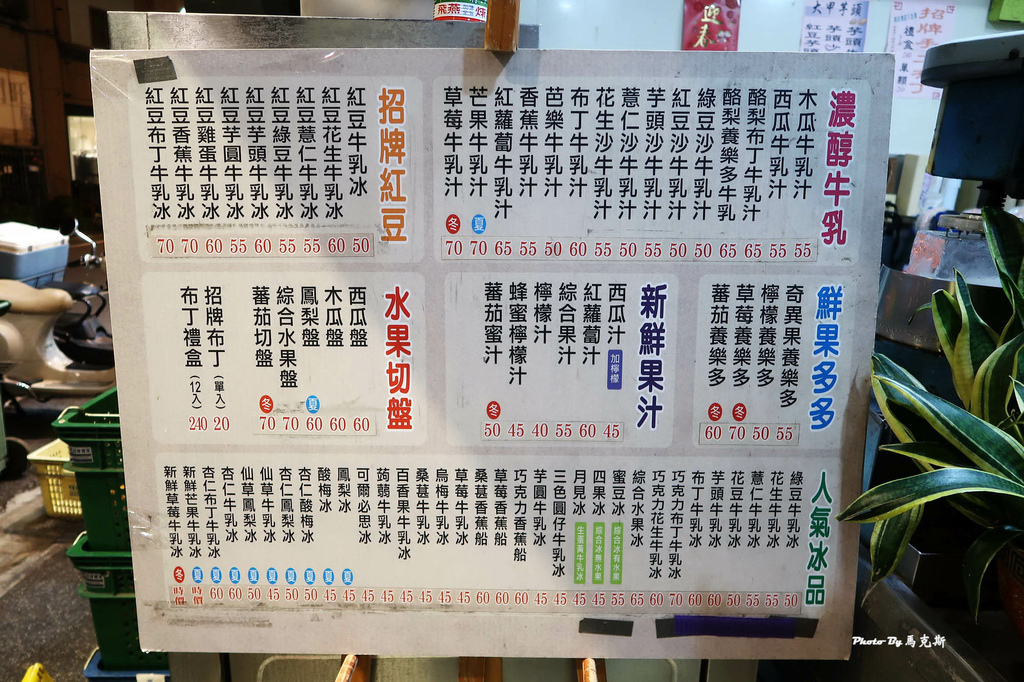 飛燕
迎春
大甲芋頭
濃醇牛乳
木瓜牛乳汁
西瓜牛乳汁
酪梨布丁牛乳汁
酪梨養樂多牛乳
綠豆沙牛乳汁
紅豆沙牛乳汁
芋頭沙牛乳汁
薏仁沙牛乳汁
花生沙牛乳汁
布丁牛乳汁
芭樂牛乳汁
香蕉牛乳汁
紅蘿蔔牛乳汁
芒果牛乳汁 夏
草莓牛乳汁 冬
70 70 65 55 50 60 55 50 55 50 50 65 65 55 55
招牌紅豆
紅豆牛乳冰
紅豆花生牛乳冰
紅豆薏仁牛乳冰
紅豆綠豆牛乳冰
紅豆芋頭牛乳冰
紅豆芋圓牛乳冰
紅豆雞蛋牛乳冰
紅豆香蕉牛乳冰
紅豆布丁牛乳冰
70 70 60 55 60 55 55 60 50
鮮果多多
奇異果養樂多
檸檬養樂多
草莓養樂多 冬
蕃茄養樂多 冬
60 70 50 55
新鮮果汁
西瓜汁 加檸檬
紅蘿蔔汁
綜合果汁
檸檬汁
蜂蜜檸檬汁
蕃茄蜜汁 冬
50 45 40 55 60 45
水果切盤
西瓜盤
木瓜盤
鳳梨盤 夏
綜合水果盤
蕃茄切盤 冬
70 70 60 60 60
招牌布丁(單入)
布丁禮盒(12入)
240 20
人氣冰品
綠豆牛乳冰
花生牛乳冰
薏仁牛乳冰
花豆牛乳冰
芋頭牛乳冰
布丁牛乳冰
巧克力布丁牛乳冰
巧克力花生牛乳冰
綜合水果冰
蜜豆冰 綜合冰有水果
四果冰 綜合冰無水果
月見冰 生蛋黃牛乳冰
三色圓仔牛乳冰
芋圓牛乳冰
巧克力香蕉船
草莓香蕉船
桑葚香蕉船
草莓牛乳冰
烏梅牛乳冰
桑葚牛乳冰
百香果牛乳冰
蒟蒻牛乳冰
可爾必思冰
鳳梨冰 夏
酸梅冰 夏
杏仁酸梅冰 夏
杏仁鳳梨冰 夏
仙草牛乳冰 夏
仙草鳳梨冰 夏
杏仁牛乳冰 夏
杏仁布丁牛乳冰 夏
新鮮芒果牛乳冰 夏
新鮮草莓牛乳冰 冬
時價 時價 60 60 50 45 50 50 45 45 45 45 45 45 45 45 60 60 60 45 45 45 45 55 65 60 70 60 60 50 55 55 50
Photo By 馬克斯